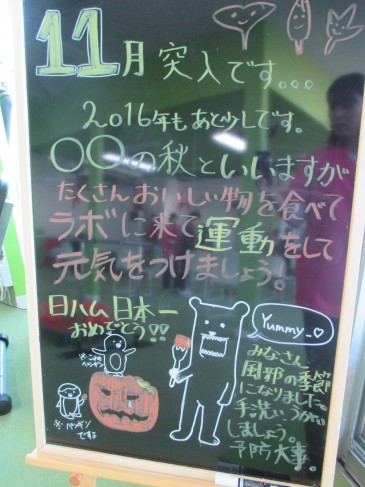 11月突入です...
2016年もあと少しです。
〇〇の秋といいますが
たくさんおいしい物を食べて
ラボに来て運動をして
元気をつけましょう。
日ハム日本一
おめでとう!!
Yummy_♡
みなさん
風邪の季節
になりました。
手洗いうがい
しましょう。
予防大事。
※ペンギン
ですよ